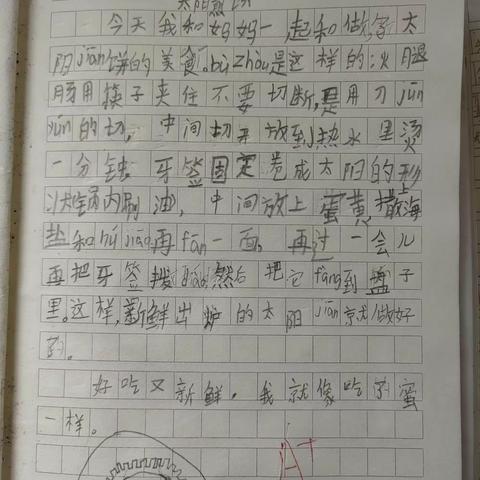 太阳煎饼
今天我和妈妈一起和做了太
阳jiān饼的美食。bù zhòu是这样的:火腿
肠用筷子夹住不要切断,是用刀jūn
jūn的切,中间切开放到热水里烫
一分钟。牙签固定卷成太阳的形
状锅内刷油,中间放上蛋黄,撒上海
盐和hú jiāo,再fān一面。再过一会儿
再把牙签拨 然后把它fàng到盘子
里。这样,新鲜出炉的太阳jiān就做好
了。
好吃又新鲜,我就像吃了蜜
一样。
A+